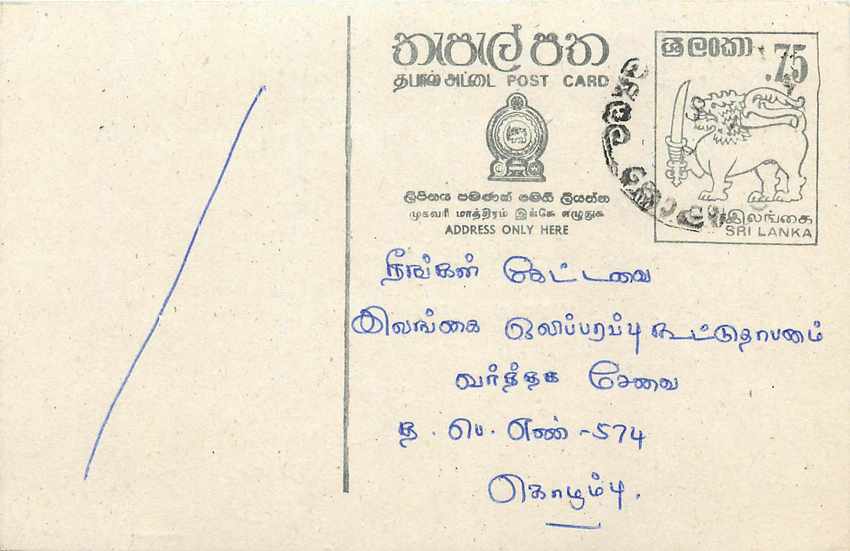 තැපැල් පත
தபால் அட்டை POST CARD
ලිපිනය පමණක් මෙහි ලියන්න
முகவரி மாத்திரம் இங்கே எழுதுக
ADDRESS ONLY HERE
ශ්‍රී ලංකා
.75
இலங்கை
SRI LANKA
நீங்கள் கேட்டவை
இலங்கை ஒலிபரப்பு கூட்டுதாபனம்
வர்த்தக சேவை
த. பெ. எண் -574
கொழும்பு.